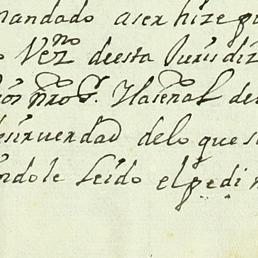 mandado aser hize pa
Vezno deesta Jurisdiz
ios nro S. Ylaseñal de
desirverdad delo que s
endole Leido elpedi